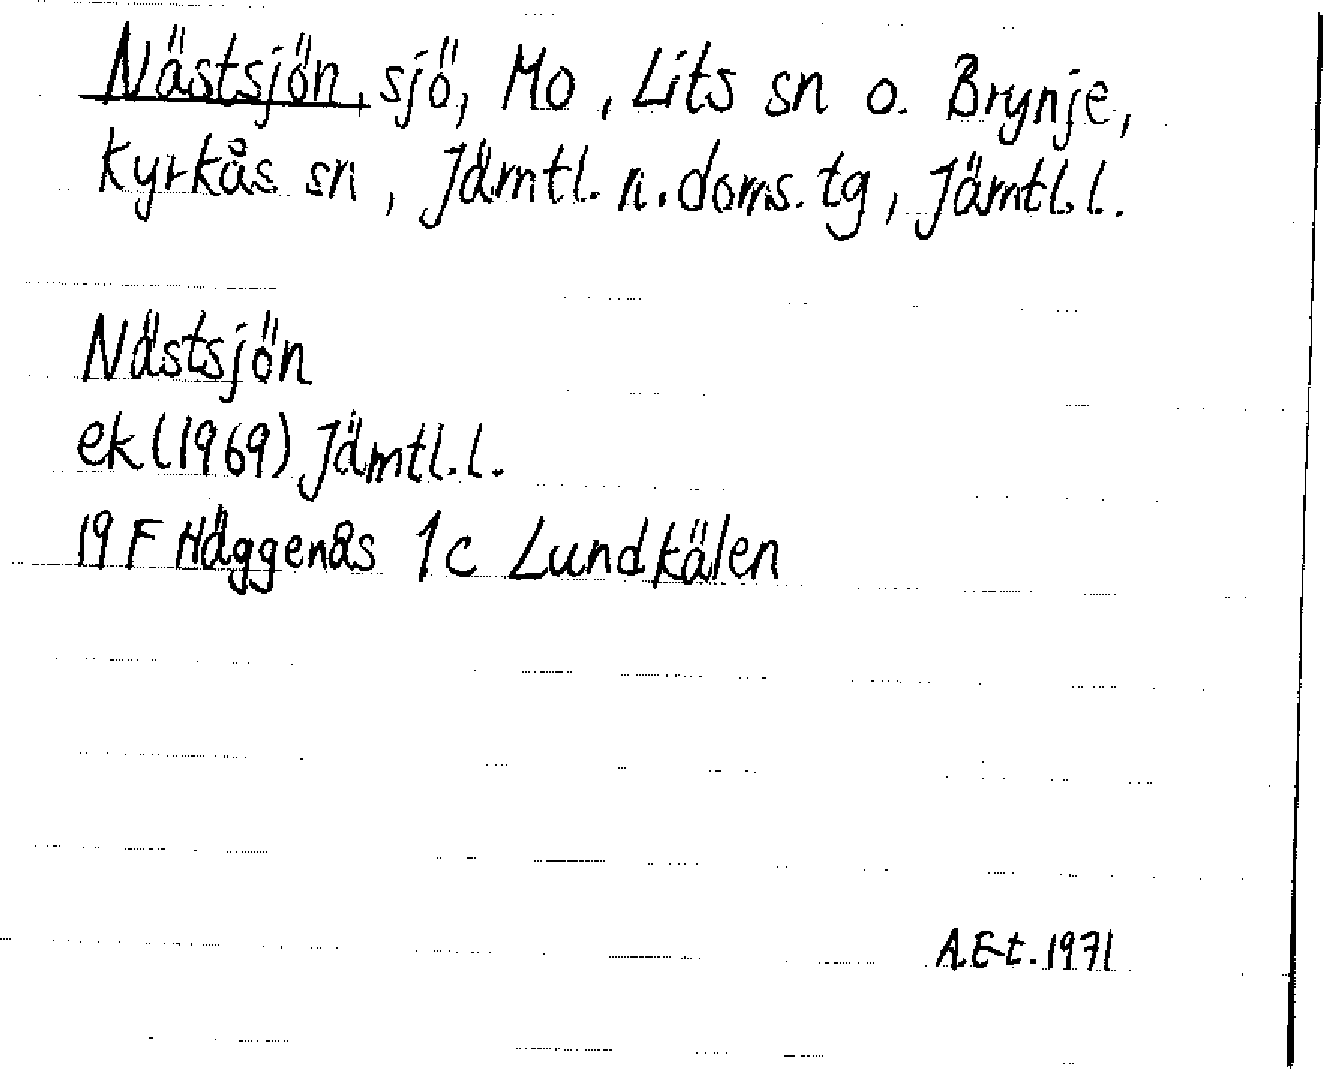 Nästsjön, sjö, Mo, Lits sn o. Brynje,
Kyrkås sn, Jämtl. n. doms. tg, Jämtl. l.
Nästsjön
ek (1969) Jämtl. l.
19 F Häggenås 1c Lundkälen
A.E-t. 1971